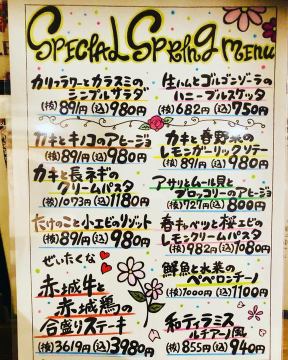 SPECIAL SPRING MENU
カリフラワーとカラスミの
シンプルサラダ
(抜)891円(込)980円
カキとキノコのアヒージョ
(抜)891円(込)980円
カキと長ネギの
クリームパスタ
(抜)1073円(込)1180円
たけのこと小エビのリゾット
(抜)891円(込)980円
ぜいたくな
赤城牛と
赤城鶏の
合盛りステーキ
(抜)3619円(込)3980円
生ハムとゴルゴンゾーラの
ハニーブルスケッタ
(抜)682円(込)750円
カキと春野菜の
レモンガーリックソテー
(抜)891円(込)980円
アサリとムール貝と
ブロッコリーのアヒージョ
(抜)727円(込)800円
春キャベツと桜エビの
レモンクリームパスタ
(抜)982円(込)1080円
鮮魚と水菜の
ペペロンチーノ
(抜)1000円(込)1100円
和ティラミス
ルチアーノ風
(抜)855円(込)940円